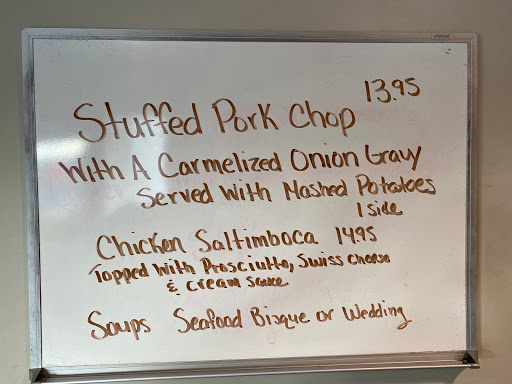 13.95
Stuffed Pork Chop
With A Carmelized Onion Gravy
Served With Mashed Potatoes
1 Side
Chicken Saltimboca 14.95
Topped With Prosciutto, Swiss Cheese
& Cream Sauce
Soups Seafood Bisque or Wedding